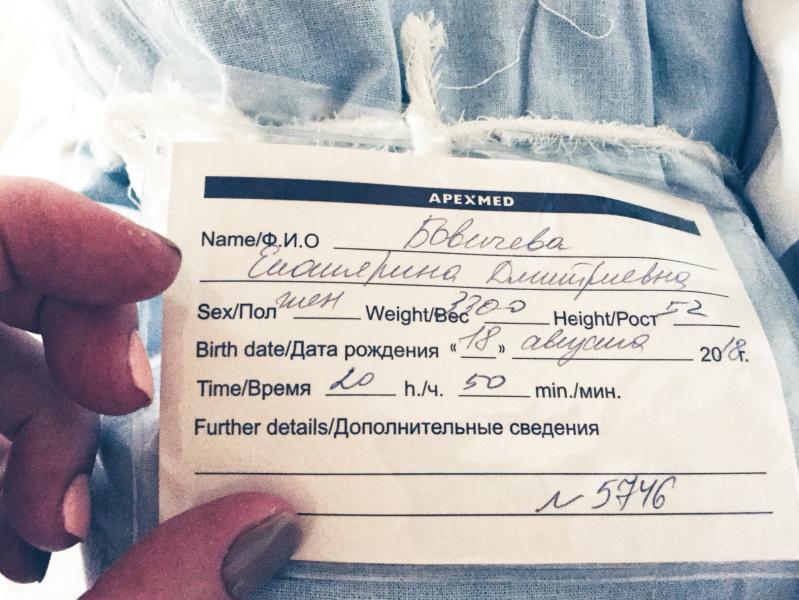 APEXMED
Name/Ф.И.О Бовичева
Екатерина Дмитриевна
Sex/Пол жен Weight/Вес 3200 Height/Рост 52
Birth date/Дата рождения «18» августа 2018г.
Time/Время 20 h./ч. 50 min./мин.
Further details/Дополнительные сведения
N 5746